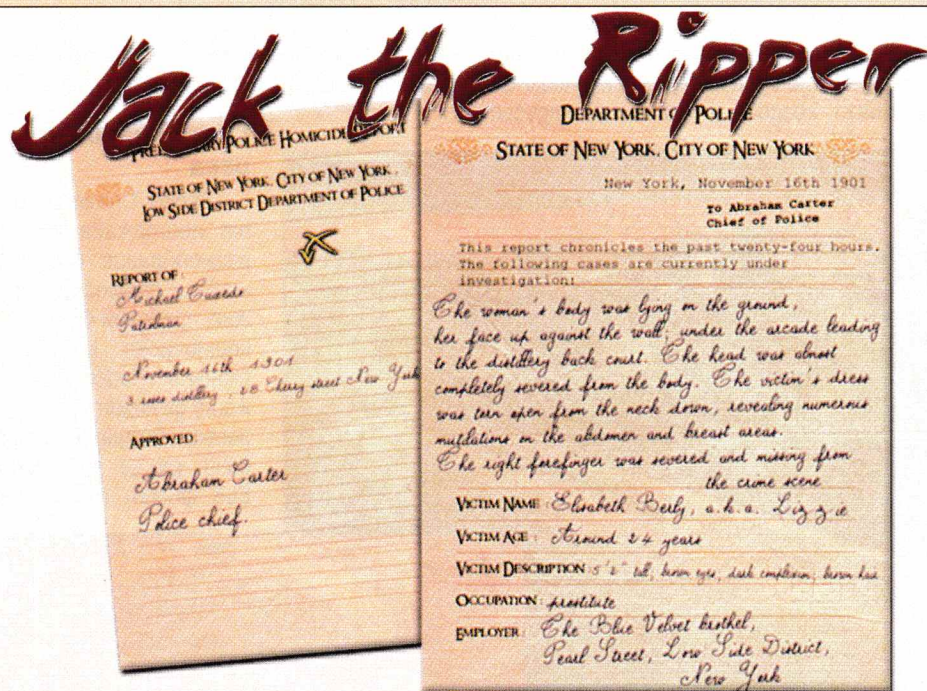 Jack the Ripper
PRELIMINARY POLICE HOMICIDE REPORT
STATE OF NEW YORK, CITY OF NEW YORK,
LOW SIDE DISTRICT DEPARTMENT OF POLICE
REPORT OF :
Michael
Patrolman
November 16th 1901
3 roses distillery, 28 Cherry street New York
APPROVED :
Abraham Carter
Police chief.
DEPARTMENT OF POLICE
STATE OF NEW YORK, CITY OF NEW YORK
New York, November 16th 1901
To Abraham Carter
Chief of Police
This report chronicles the past twenty-four hours.
The following cases are currently under
investigation:
The woman's body was lying on the ground,
her face up against the wall, under the arcade leading
to the distillery back court. The head was almost
completely severed from the body. The victim's dress
was torn open from the neck down, revealing numerous
mutilations on the abdomen and breast areas.
The right forefinger was severed and missing from
the crime scene
VICTIM NAME : Elisabeth Berly, a.k.a. Lizzie
VICTIM AGE : Around 24 years
VICTIM DESCRIPTION : 5'2" tall, brown eyes, dark complexion, brown hair
OCCUPATION : prostitute
EMPLOYER : The Blue Velvet brothel,
Pearl Street, Low Side District,
New York